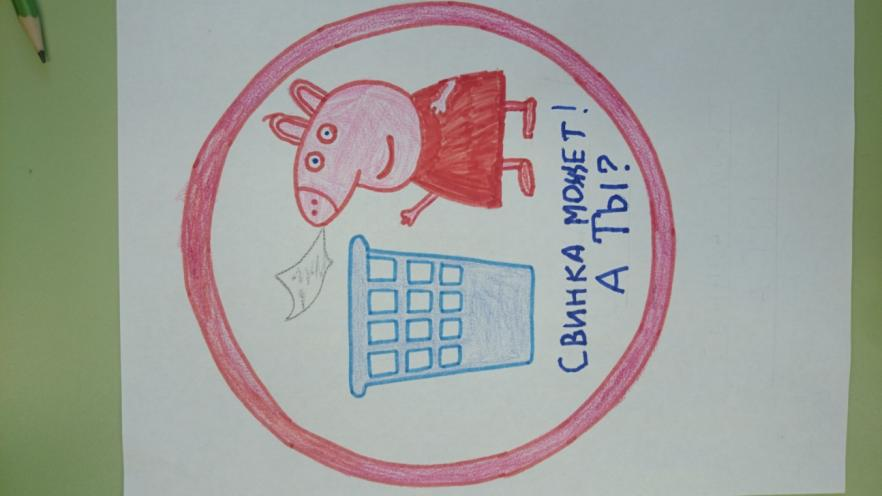 СВИНКА МОЖЕТ!
А ТЫ?